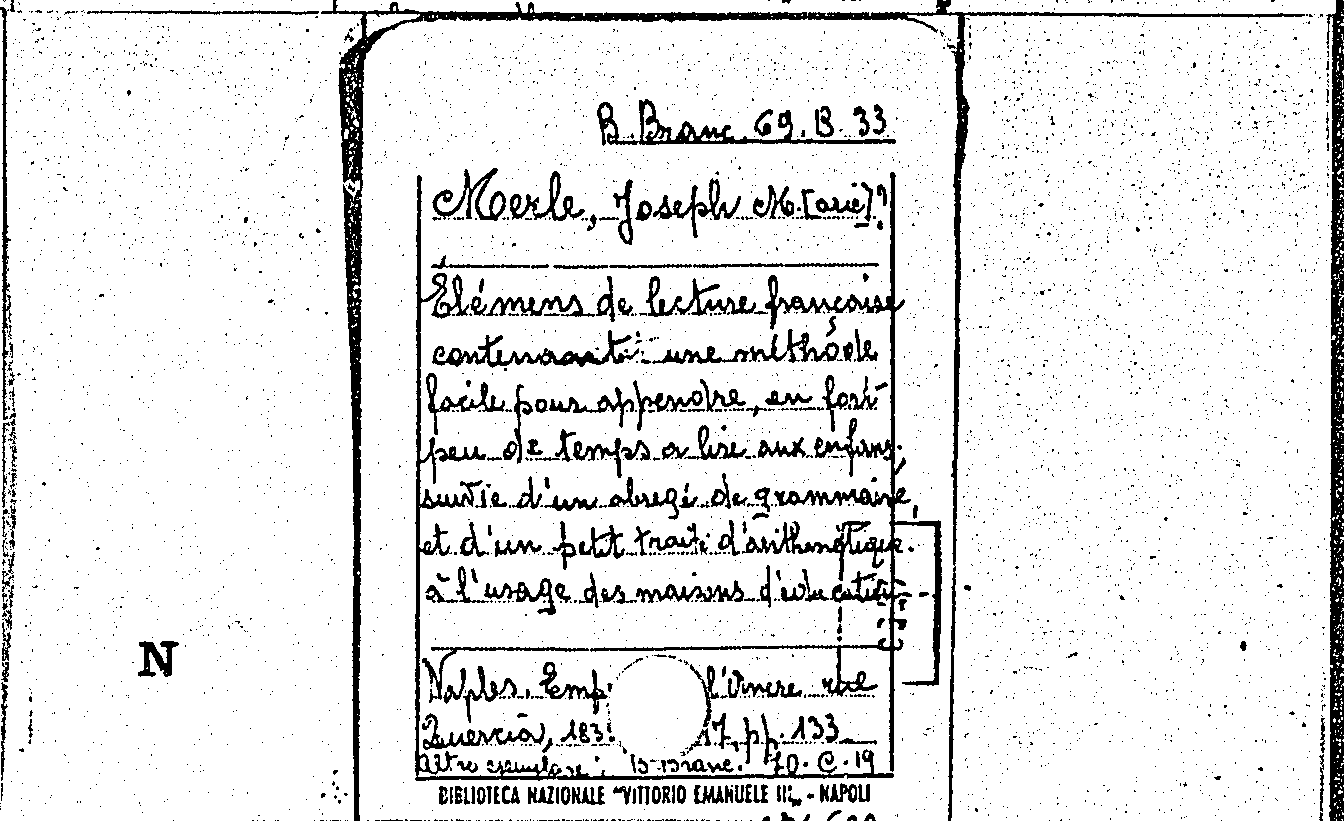 B. Branc. 69. B. 33
Merle, Joseph M.[arie]
Elémens de lecture française
contenant: une méthode
facile pour appendre, en fort
peu de temps a lire aux enfans.
suivie d'un abregé de grammaire,
et d'un petit traité d'arithmétique.
à l'usage des maisons d'éducation
N
Naples. rue
Quercia, 183 pp. 133
Altro esemplare: B. Branc. 70. C. 19
BIBLIOTECA NAZIONALE "VITTORIO EMANUELE III" - NAPOLI